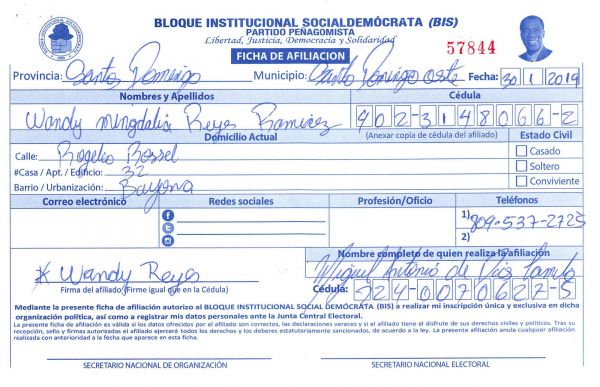 BLOQUE INSTITUCIONAL SOCIALDEMÓCRATA (BIS)
PARTIDO PEÑAGOMISTA
Libertad, Justicia, Democracia y Solidaridad
57844
FICHA DE AFILIACION
Provincia: Santo Domingo Municipio: Santo Domingo oste Fecha: 30 1 2019
Nombres y Apellidos Cédula
Wandy mingdalia Reyes Ramirez 402-3148066-2
Domicilio Actual (Anexar copia de cédula del afiliado) Estado Civil
Calle: Rogelio Rossel Casado
#Casa / Apt. / Edificio: 32 Soltero
Barrio / Urbanización: Bayona Conviviente
Correo electrónico Redes sociales Profesión/Oficio Teléfonos
1) 809-537-2725
2)
Nombre completo de quien realiza la afiliación
* Wandy Reyes Miguel Antonio de
Firma del afiliado (Firme igual que en la Cédula) Cédula: 224-0070627-5
Mediante la presente ficha de afiliación autorizo al BLOQUE INSTITUCIONAL SOCIAL DEMÓCRATA (BIS) a realizar mi inscripción única y exclusiva en dicha
organización política, así como a registrar mis datos personales ante la Junta Central Electoral.
La presente ficha de afiliación es válida si los datos ofrecidos por el afiliado son correctos, las declaraciones veraces y si el afiliado tiene el disfrute de sus derechos civiles y políticos. Tras su
recepción, sello y firmas autorizadas el afiliado ejercerá todos los derechos y los deberes estatutariamente sancionados, de acuerdo a la ley. La presente afiliación anula cualquier afiliación
realizada con anterioridad a la fecha que aparece en esta ficha.
SECRETARIO NACIONAL DE ORGANIZACIÓN SECRETARIO NACIONAL ELECTORAL